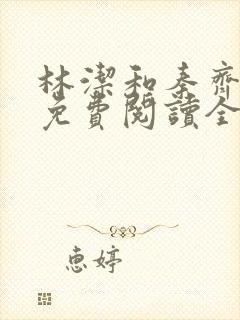 林潔和秦齊
免費閱讀全
惠婷